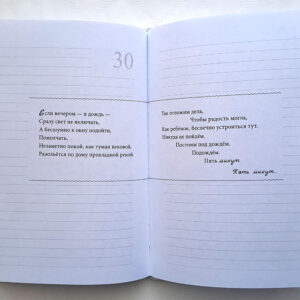 30
Если вечером — в дождь —
Сразу свет не включать,
А бесшумно к окну подойти,
Помолчать,
Незаметно покой, как туман вековой,
Разольётся по дому прохладной рекой.
Так отложим дела,
Чтобы радость могла,
Как ребёнок, беспечно устроиться тут.
Никуда не пойдём.
Постоим под дождём.
Подождём.
Пять минут.
Пять минут.